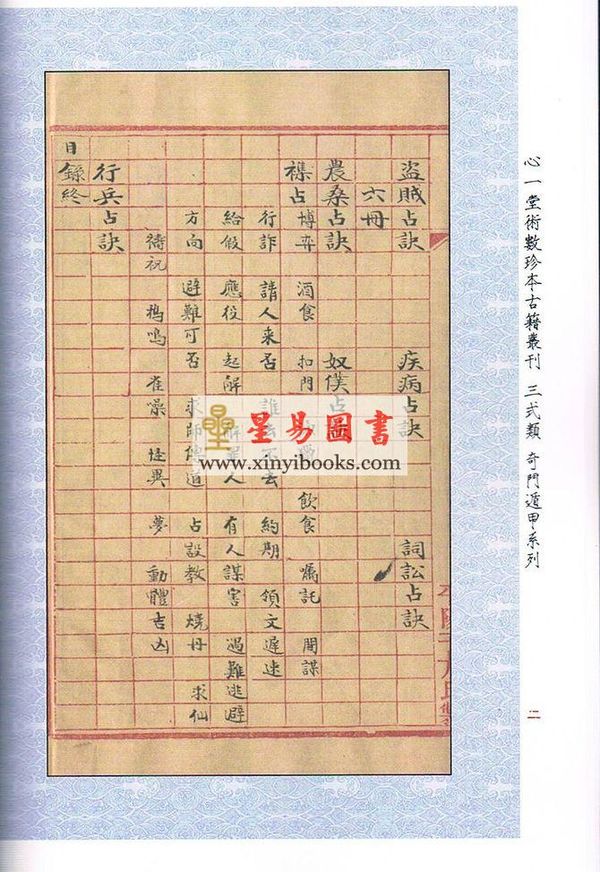 心一堂術數珍本古籍叢刊 三式類 奇門遁甲系列
二
盜賊占訣 疾病占訣 詞訟占訣
六冊
農桑占訣 奴僕占
襍占 博弈 酒食 扣門 飲食 囑託 間謀
行詐 請人來否 誰去不去 約期 領文遲速
給假 應役 起解 解罪人 有人謀害 遇難逃避
方向 避難可否 求師傳道 占設教 燒丹 求仙
禱祝 鴉鳴 雀噪 怪異 夢 動體吉凶
行兵占訣
目錄終
星易圖書
www.xinyibooks.com